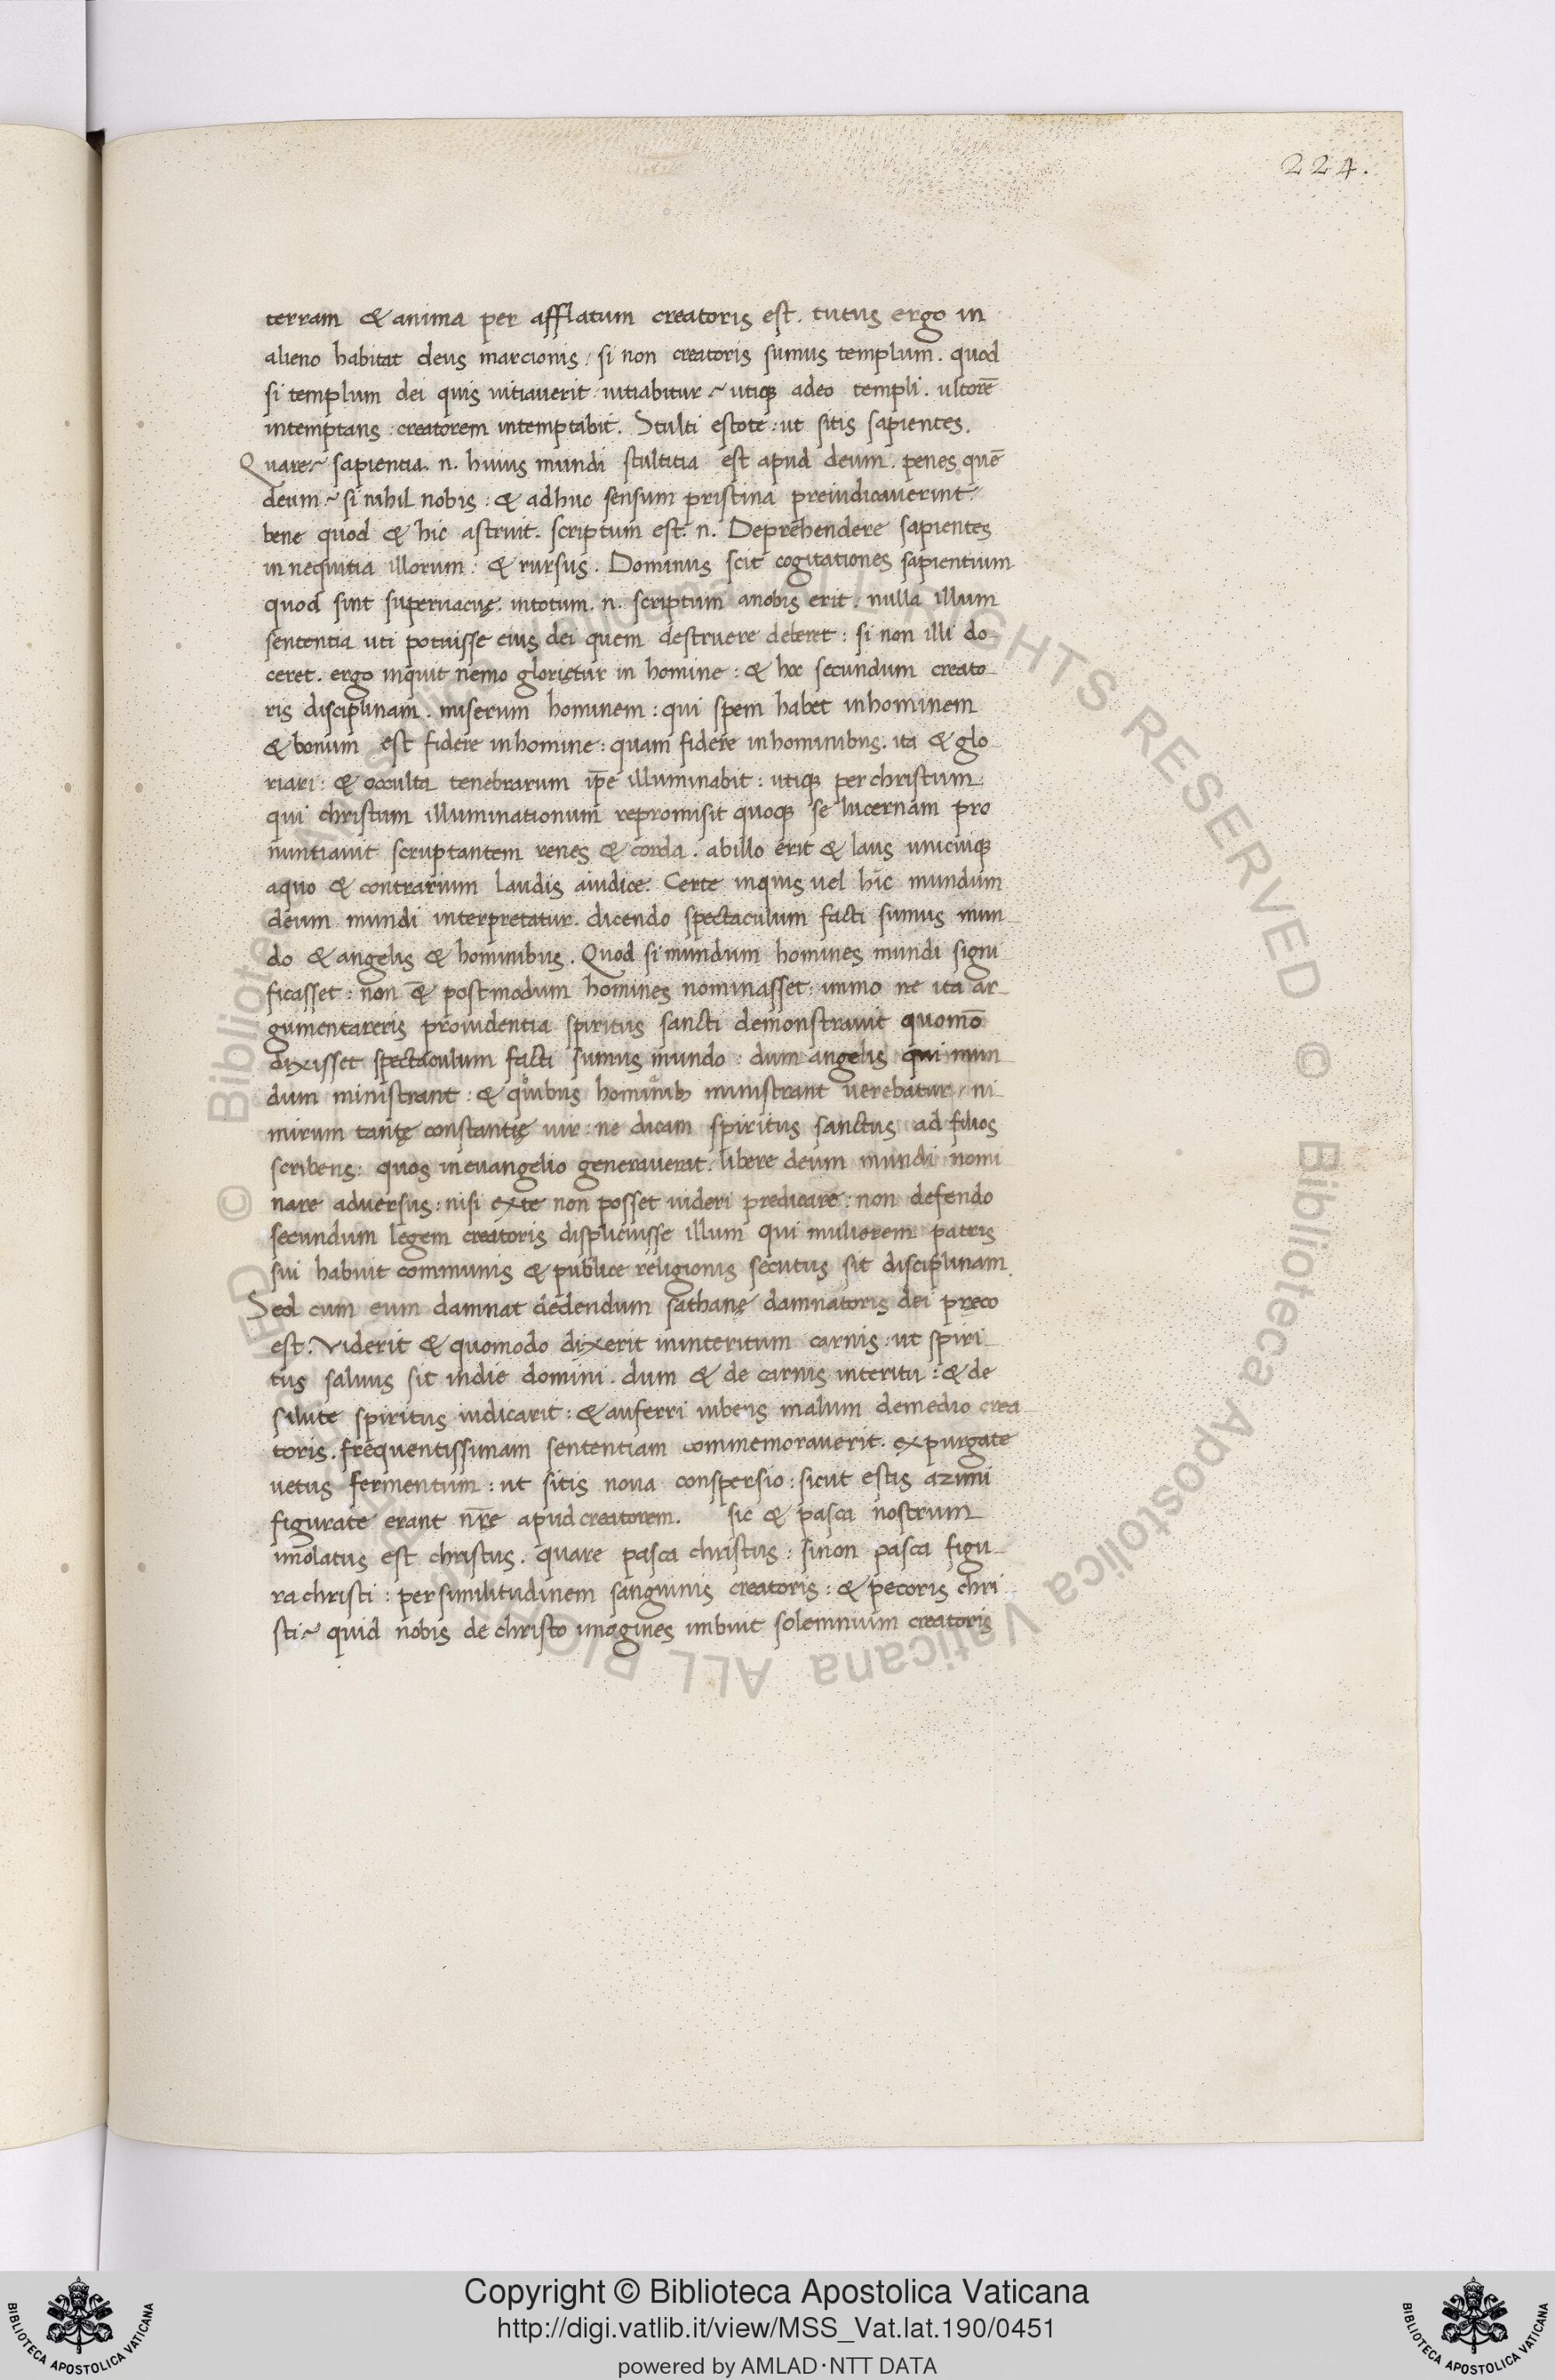 224.
terram & anima per afflatum creatoris est. tutus ergo in
alieno habitat deus marcionis / si non creatoris sumus templum. quod
si templum dei quis uitiauerit uitiabitur ~ utiqꝫ adeo templi. ultorē
intemptans : creatorem intemptabit. Stulti estote : ut sitis sapientes.
Quare ~ sapientia. n. huius mundi stultitia est apud deum. penes quē
deum ~ si nihil nobis : & adhuc sensum pristina preiudicauerint
bene quod & hic astruit. scriptum est. n. Deprehendere sapientes
in nequitia illorum : & rursus. Dominus scit cogitationes sapientium
quod sint superuacuę. intotum. n. scriptum anobis erit. nulla illum
sententia uti potuisse eius dei quem destruere deberet : si non illi do-
ceret. ergo inquit nemo glorietur in homine : & hoc secundum creato-
ris disciplinam. miserum hominem : qui spem habet inhominem
& bonum est fidere inhomine : quam fidere inhominibus. ita & glo-
riari : & occulta tenebrarum ip̄e illuminabit : utiqꝫ per christum
qui christum illuminationum repromisit quoqꝫ se lucernam pro
nuntiauit scruptantem renes & corda. abillo erit & laus unicuiqꝫ
aquo & contrarium laudis aiudice. Certe inquis uel hic mundum
deum mundi interpretatur. dicendo spectaculum facti sumus mun-
do & angelis & hominibus. Quod si mundum homines mundi signi
ficasset : non & postmodum homines nominasset : immo ne ita ar-
gumentareris prouidentia spiritus sancti demonstrauit quomō
dixisset spectaculum facti sumus mundo : dum angelis qui mun
dum ministrant : & quibus ministrant uerebatur / ni-
mirum tantę constantię uir : ne dicam spiritus sanctus ad filios
scribens : quos ineuangelio generauerat : libere deum mundi nomi
nare aduersus : nisi exte non posset uideri predicare : non defendo
secundum legem creatoris displicuisse illum qui mulierem patris
sui habuit communis & publice religionis secutus sit disciplinam.
Sed cum eum damnat dedendum sathanę damnatoris dei preco
est. Viderit & quomodo dixerit ininteritum carnis : ut spiri-
tus saluus sit indie domini. dum & de carnis interitu : & de
salute spiritus iudicarit : & auferri iubens malum demedio crea
toris. frequentissimam sententiam commemorauerit. expurgate
uetus fermentum : ut sitis noua conspersio : sicut estis azimi
figurate erant nr̄e apud creatorem. sic & pasca nostrum
imolatus est christus. quare pasca christus : sinon pasca figu-
ra christi : per similitudinem sanguinis creatoris : & pecoris chri
sti ~ quid nobis de christo imagines imbuit solemnium creatoris
© Biblioteca Apostolica Vaticana ALL RIGHTS RESERVED
© Biblioteca Apostolica Vaticana ALL RIGHTS RESERVED
Copyright © Biblioteca Apostolica Vaticana
http://digi.vatlib.it/view/MSS_Vat.lat.190/0451
powered by AMLAD·NTT DATA
BIBLIOTECA APOSTOLICA VATICANA
BIBLIOTECA APOSTOLICA VATICANA